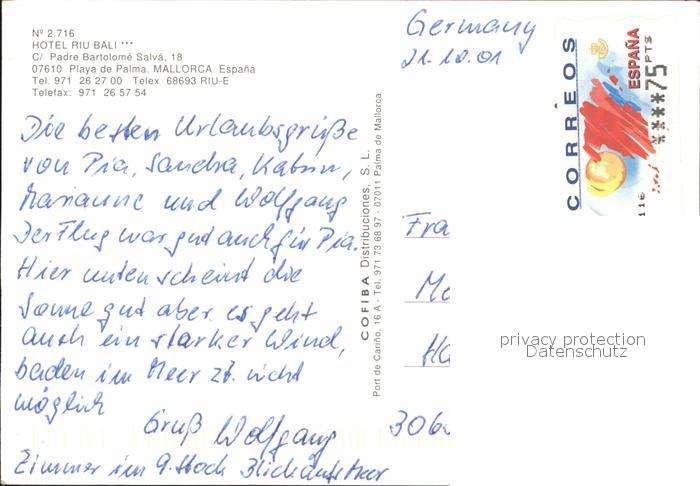 Nº 2.716
HOTEL RIU BALI ***
C/ Padre Bartolomé Salvá, 18
07610 Playa de Palma. MALLORCA. España
Tel. 971 26 27 00 Telex 68693 RIU-E
Telefax: 971 26 57 54
Die besten Urlaubsgrüße
von Pia, Sandra, Katrin,
Marianne und Wolfgang
Der Flug war gut auch für Pia.
Hier unten scheint die
Sonne gut aber es geht
auch ein starker Wind,
baden im Meer zt. nicht
möglich
Gruß Wolfgang
Zimmer im 9. Stock Blick aufs Meer
COFIBA Distribuciones, S. L.
Port de Cariño, 16 A - Tel. 971 73 68 97 - 07011 Palma de Mallorca
Germany
21.10.01
CORREOS
ESPAÑA
****75 PTS
116
Fra
Ha
privacy protection
Datenschutz